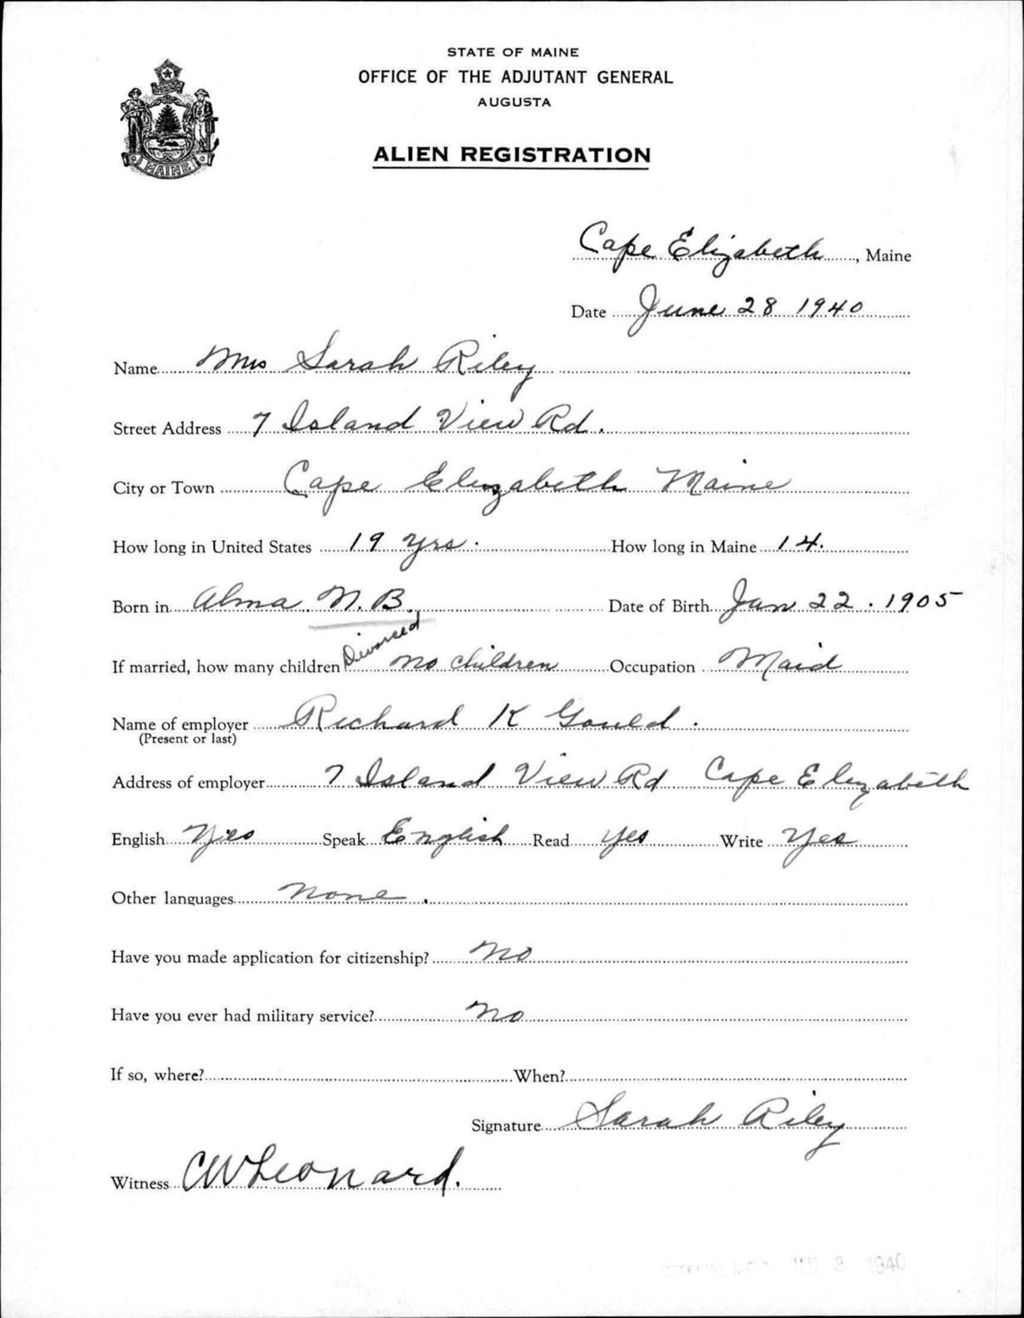 STATE OF MAINE
OFFICE OF THE ADJUTANT GENERAL
AUGUSTA
ALIEN REGISTRATION
MAINE
Cape Elizabeth, Maine
Date June 28 1940
Name Mrs Sarah Riley
Street Address 7 Island View Rd.
City or Town Cape Elizabeth Maine
How long in United States 19 yrs. How long in Maine 14.
Born in Alma N.B. Date of Birth Jan 22. 1905
If married, how many children Divorced no children Occupation Maid
Name of employer Richard K Gould.
(Present or last)
Address of employer 7 Island View Rd Cape Elizabeth
English Yes Speak English Read yes Write Yes
Other languages none.
Have you made application for citizenship? No
Have you ever had military service? No
If so, where? When?
Signature Sarah Riley
Witness CW Leonard.
1940